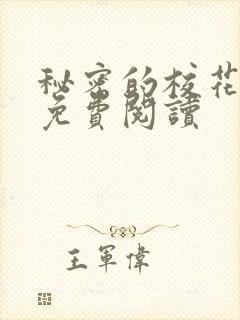 秘密的校花
免費閱讀
王軍偉